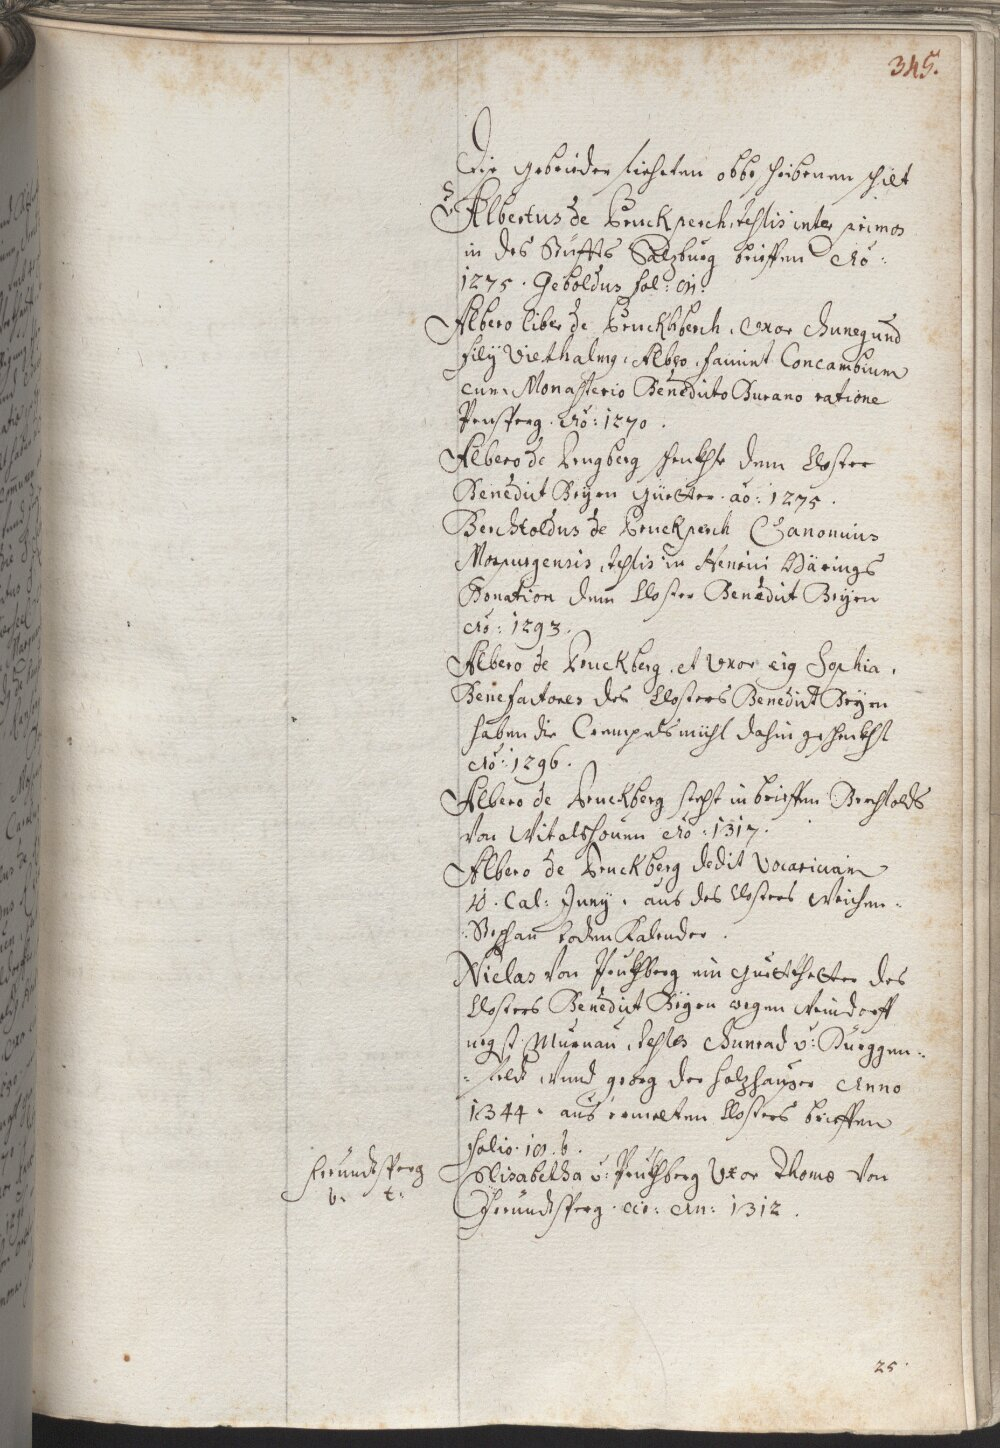 345.
Die gebrüeder fiehrten obbeschribenen schilt
Albertus de Pruckperch, testis inter primos
in des Stüffts Salzburg brieffen Aõ:
1275. Geboldus fol:
Albero liber de Pruckhberch, Uxor Chunegund
filÿ Viethalmg, Albro, faciunt Concambium
cum Monasterio Benedicto Burano ratione
Pensperg. Aõ: 1270.
Albero de Prugberg schenkht dem Closter
Benedict Beyrn Güetter. aõ: 1275.
Berchtoldus de Pruckperch Canonicus
Mospurgensis, testis in Henrici Härings
Donation dem Closter Benedict Beyrn
Aõ: 1293.
Albero de Pruckberg, et Uxor eig Sophia,
Benefactores des Closters Benedict Beyrn
haben die Crempelsmühl dahin geschenkht
Aõ: 1296.
Albero de Pruckberg steht in brieffen Berchtolds
von Witalshouen Aõ: 1317.
Albero de Pruckberg dedit
10. Cal: Junÿ. aus des Closters Weichen-
:Stephan todten Kalender.
Niclas von Prukhberg ein guettheter des
Closters Benedict Beyrn wegen Weindorff
negst Murnau, testes Chunrad v: Dürggen-
-feldt vnnd georg der holzhauser Anno
1344. aus ermelten Closters brieffen
folio. 101. b.
Freundtsperg
v. t:
Elisabetha v: Prukhberg Uxor Thomæ von
Freundtsperg. An: 1312.
25.